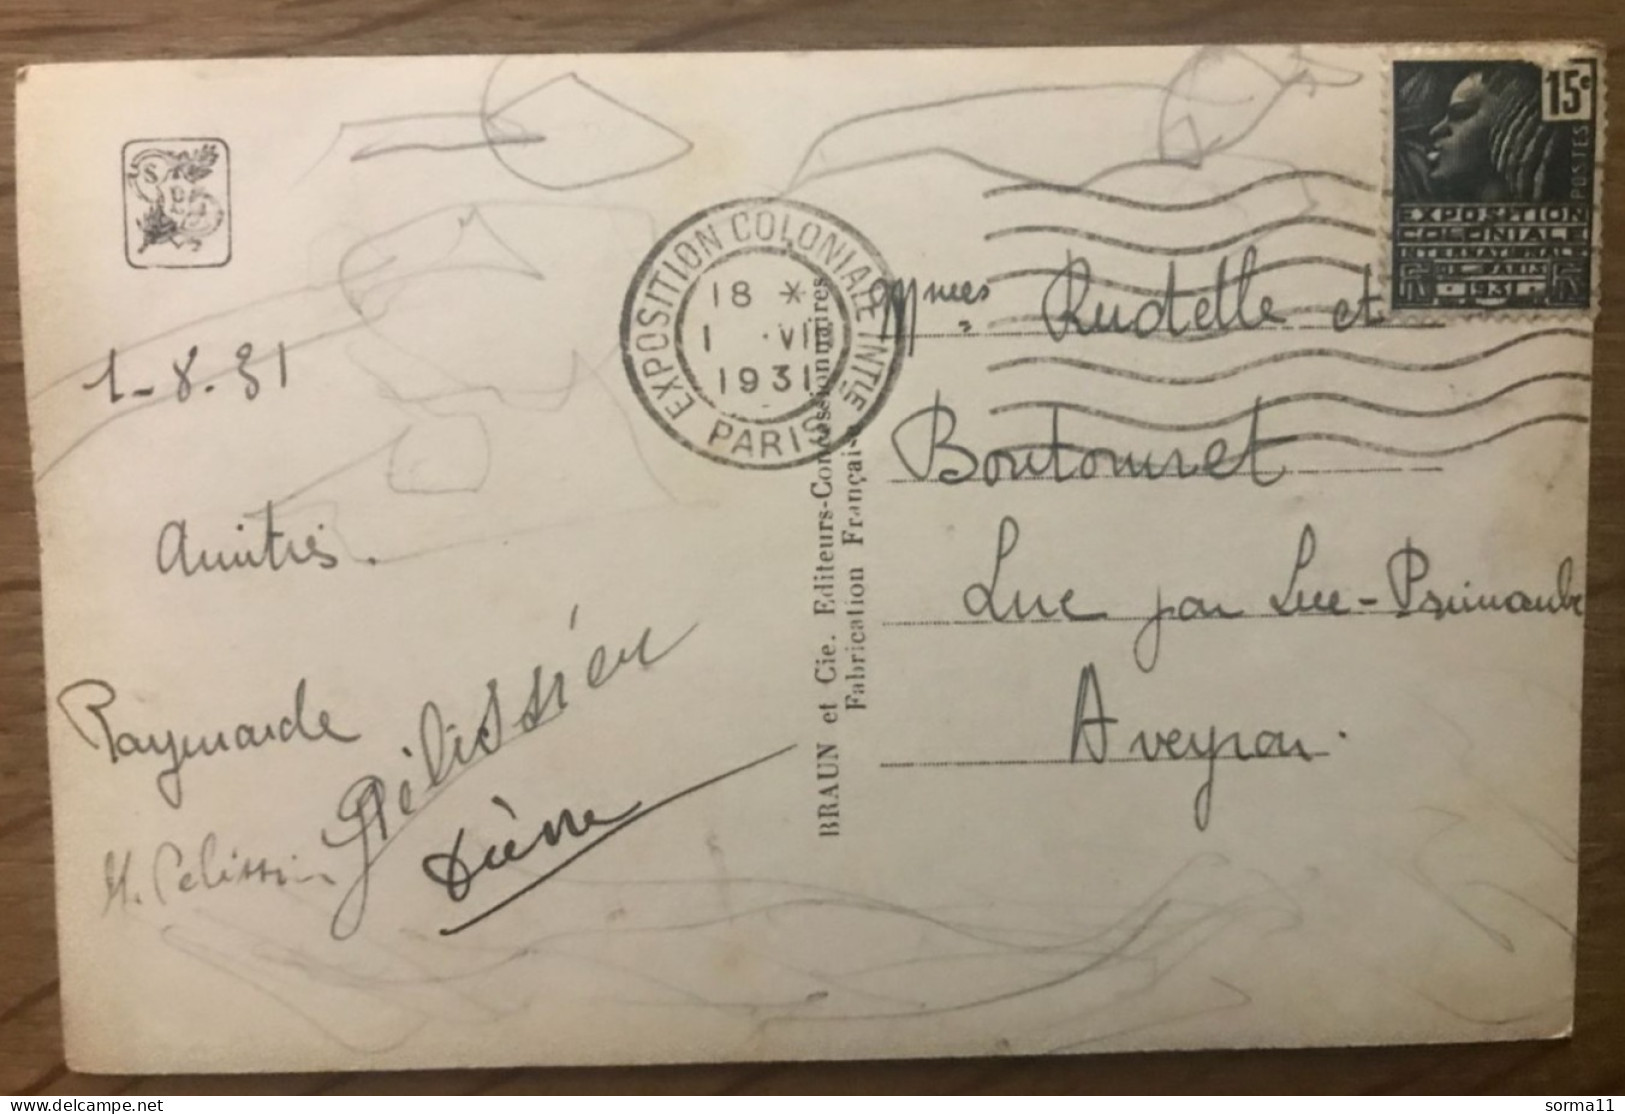 1-8.31
Amitiés.
Raymonde
M. Pelissier
Pélissier
EXPOSITION COLONIALE INTLE
PARIS
18 *
1 VI
1931
BRAUN et Cie. Editeurs-Concessionnaires
Fabrication Française
15c
POSTES
EXPOSITION
COLONIALE
INTERNATIONALE
DE PARIS
1931
Mmes Rudelle et
Boutonnet
Luc par Luc-Primaube
Aveyron.
sorma11